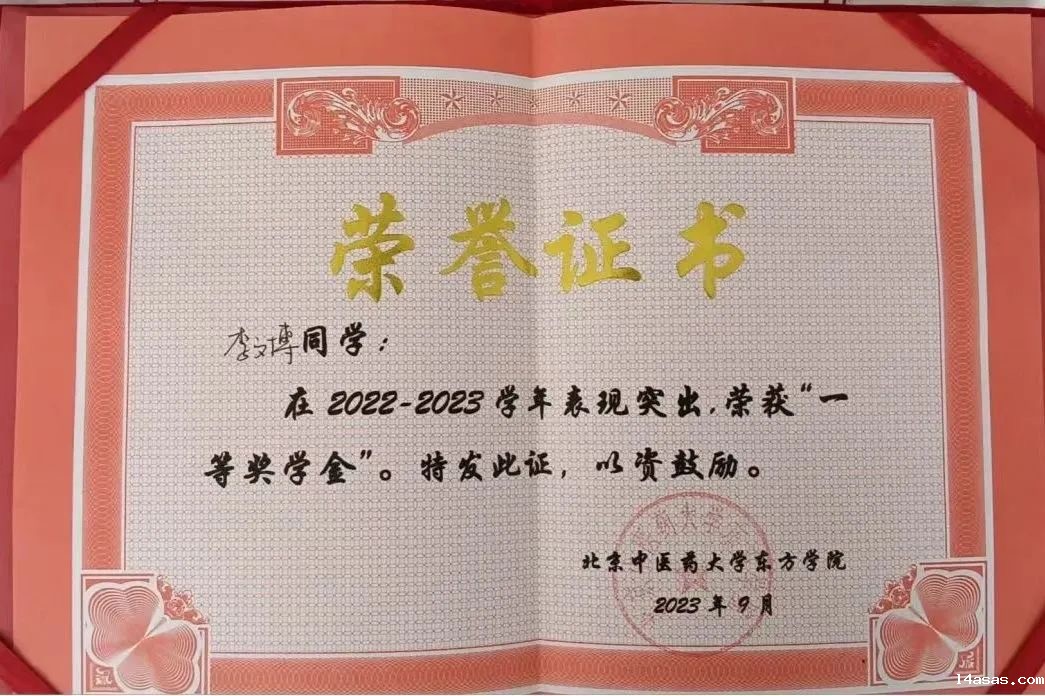 荣誉证书
李文博同学：
在2022-2023学年表现突出，荣获“一
等奖学金”。特发此证，以资鼓励。
北京中医药大学东方学院
2023年9月
14asas.com